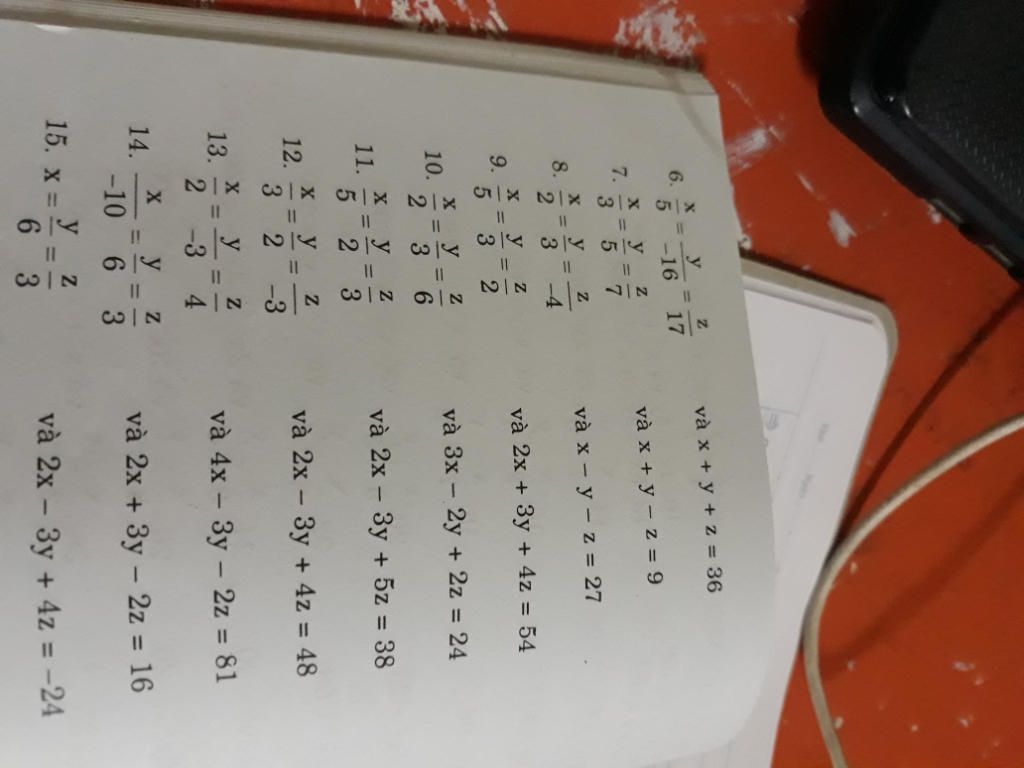 6. x/5 = y/-16 = z/17 và x + y + z = 36
7. x/3 = y/5 = z/7 và x + y – z = 9
8. x/2 = y/3 = z/-4 và x – y – z = 27
9. x/5 = y/3 = z/2 và 2x + 3y + 4z = 54
10. x/2 = y/3 = z/6 và 3x – 2y + 2z = 24
11. x/5 = y/2 = z/3 và 2x – 3y + 5z = 38
12. x/3 = y/2 = z/-3 và 2x – 3y + 4z = 48
13. x/2 = y/-3 = z/4 và 4x – 3y – 2z = 81
14. x/-10 = y/6 = z/3 và 2x + 3y – 2z = 16
15. x = y/6 = z/3 và 2x – 3y + 4z = –24